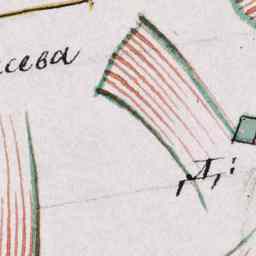 сева
Д: